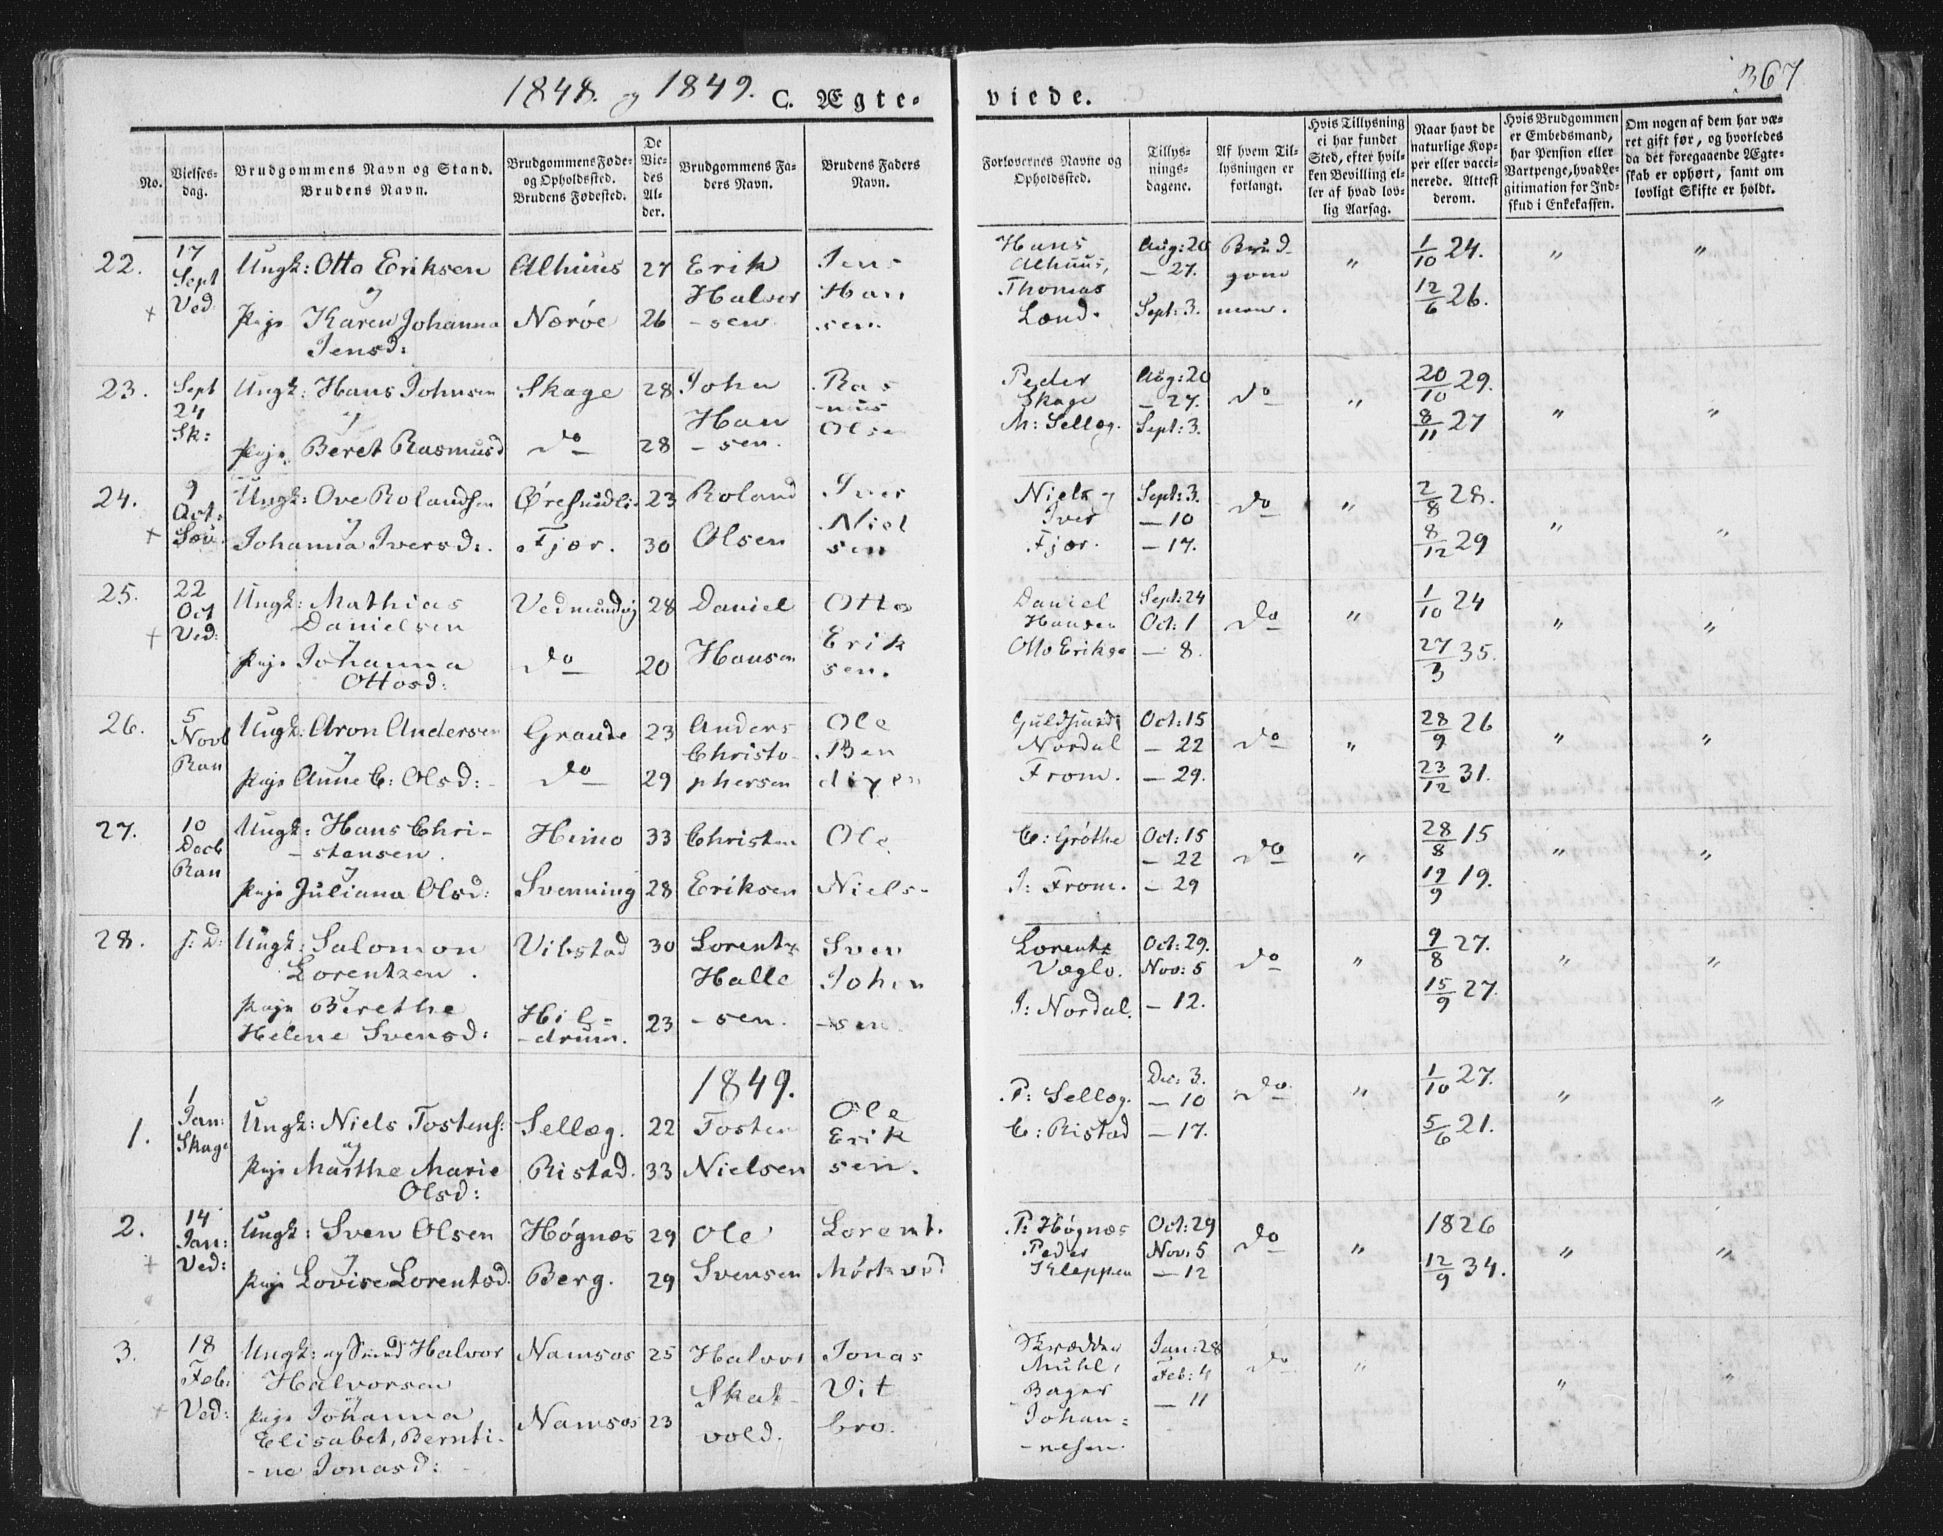 1848. og 1849. C. Ægte-
viede.
367
No.
Vielses-
dag.
Brudgommens Navn og Stand.
Brudens Navn.
Brudgommens Føde-
og Opholdssted.
Brudens Fødested.
De
Vie-
des
Al-
der.
Brudgommens Fa-
ders Navn.
Brudens Faders
Navn.
Forlovernes Navne og
Opholdssted.
Tillys-
nings-
dagene.
Af hvem Til-
lysningen er
forlangt.
Hvis Tillysning
ei har fundet
Sted, efter hvil-
ken Bevilling el-
ler af hvad lov-
lig Aarsag.
Naar havt de
naturlige Kop-
per eller vacci-
nerede. Attest
derom.
Hvis Brudgommen
er Embedsmand,
har Pension eller
Vartpenge, hvad Le-
gitimation for Ind-
skud i Enkekassen.
Om nogen af dem har væ-
ret gift før, og hvorledes
da det foregaaende Ægte-
skab er ophørt, samt om
lovligt Skifte er holdt.
22.
17
Sept
Ved
Ungk: Otto Eriksen
og
Pige Karen Johanna
Jensd:
Alhuus
Nærøe
27
26
Erik
Halvor
-sen
Jens
Han
sen.
Hans
Alhuus,
Thomas
Lænd.
Aug: 20
- 27.
Sept: 3.
Brud-
gom
men.
"
1/10 24.
12/6 26.
"
"
23.
Sept
24
Sk:
Ungk: Hans Johnsen
og
Pige Beret Rasmusd
Skage
do
28
28
John
Han
-sen.
Ras
-mus
Olse
Peder
Skage
M: Sellæg.
Aug: 20
- 27.
Sept: 3.
do
"
20/10 29.
8/11 27
"
"
24.
9
Oct:
Sæv:
Ungk: Ove Rolandsen
og
Johanna Iversd:.
Øresundli
Fjær.
23
30
Roland
Olsen
Iver
Niel
sen
Niels og
Iver
Fjær.
Sept: 3.
- 10
- 17.
do
"
2/8 28.
8/12 29
"
"
25.
22
Oct
Ved:
Ungk: Mathias
Danielsen
og
Pige Johanna
Ottosd:
Vedmundvig
do
28
20
Daniel
Hansen
Otto
Erik
sen.
Daniel
Hansen
Otto Erikse
Sept: 24
Oct: 1
- 8.
do
"
1/10 24
27/3 35.
"
"
26.
5
Novb
Ran
Ungk: Aron Andersen
og
Pige Anne C: Olsd:
Grande
do
23
29
Anders
Christo-
phersen
Ole
Ben
dixen
Nordal
From.
Oct: 15
- 22
- 29.
do
"
28/9 26
23/12 31.
"
"
27.
10
Decb
Ran
Ungk: Hans Chri-
-stensen.
og
Pige Juliana Olsd:
Himo
Svenning
33
28
Christen
Eriksen
Ole
Niels-
C: Grøthe
J: From.
Oct: 15
- 22
- 29
do
"
28/8 15
19/9 19.
"
"
28.
s: D:
Ungk: Salomon
Lorentzen.
og
Pige Berethe
Helene Svensd:
Vibstad
Hil-
-drum.
30
23
Lorentz
Halle
-sen.
Sven
John
-sen
Lorentz
Væglo.
J: Nordal.
Oct: 29.
Nov: 5
- 12.
do
"
9/8 27.
15/9 27.
"
"
1849.
1.
1
Jan:
Skage
Ungk: Niels Tostens:
og
Pige Marthe Marie
Olsd:
Sellæg.
Ristad.
22
33
Tosten
Nielsen
Ole
Erik
sen.
P: Sellæg.
C: Ristad
Dec: 3.
- 10
- 17.
do
"
1/10 27.
5/6 21.
"
"
2.
14
Jan:
Ved:
Ungk: Sven Olsen
og
Pige Lovise Lorentsd.
Høgnæs
Berg.
29
29
Ole
Svensen
Lorent.
Mørkved
P: Høgnæs
Peder
Kleppen
Oct: 29
Nov: 5
- 12
do
"
1826
12/9 34.
"
"
3.
18
Feb:
Ved:
Ungk: og Smed Halvor
Halvorsen
og
Pige Johanna
Elisabet, Bernti-
-ne Jonasd:
Namsos
Namsos
25
23
Halvor
Skat-
vold.
Jonas
Vit
bro.
Skrædder
Muhl,
Bager
Johan-
-nesen.
Jan: 28
Feb: 4
- 11
do
"
"
"